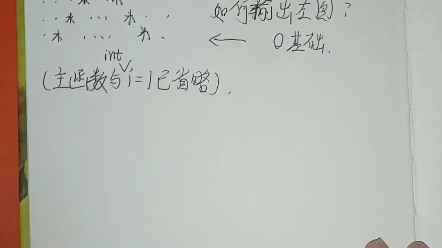 . . * . . . * . 如何输出左图?
. . * .... * . ← 0基础.
int
(主函数与i=1已省略).